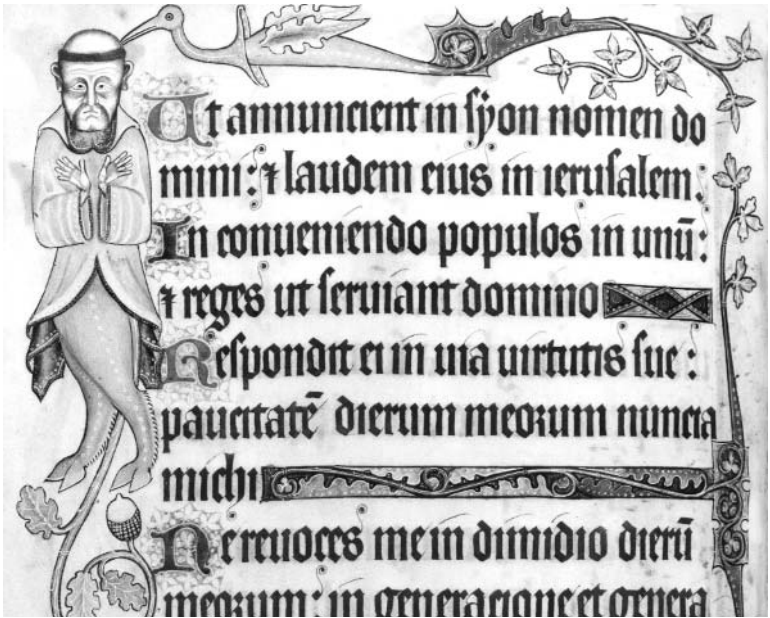 Ut annuncient in syon nomen do
mini: ⁊ laudem eius in ierusalem:
In conueniendo populos in unū:
⁊ reges ut seruiant domino
Respondit ei in uia uirtutis sue:
paucitatē dierum meorum nuncia
michi
Ne reuoces me in dimidio dierū
meorum: in generacione et genera